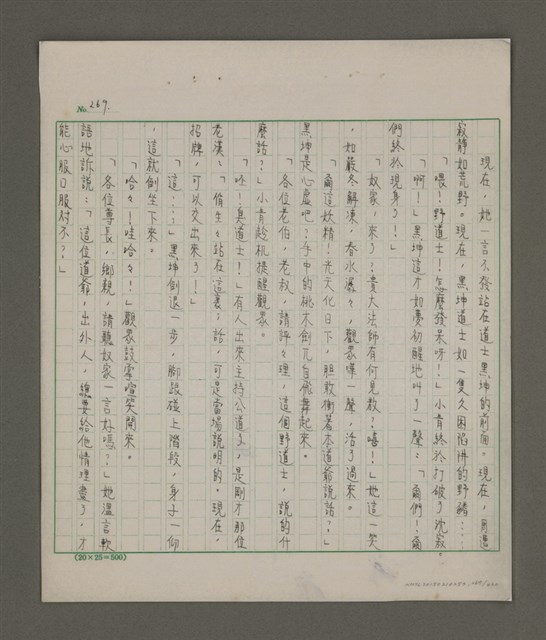 No. 269.
現在,她一言不發站在道士黑坤的前面。現在,周遭
寂靜如荒野。現在,黑坤道士如一隻久困陷阱的野豬……
「喂!野道士!怎麼發呆呀!」小青終於打破了沈寂。
「啊!」黑坤這才如夢初醒地叫了一聲:「爾們!爾
們終於現身了!」
「奴家,來了!貴大法師有何見教?嘻!」她這一笑
,如嚴冬解凍,春水濺々,觀眾嘩一聲,活了過來。
「爾這妖精!光天化日下,胆敢衝著本道爺說話?」
黑坤是心虛吧?手中的桃木劍兀自飛舞起來。
「各位老伯,老叔,請評々理,這個野道士,說的什
麼話?」小青趁机提醒觀眾。
「呸!臭道士!」有人出來主持公道了,是剛才那位
老漢、
「俏生々站在這裏;話,可是當場說明的。現在,
招牌,可以交出來了!」
「這……」黑坤倒退一步,腳跟碰上階段,身子一仰
,這就倒坐下來。
「哈々!哇哈々!」觀眾談掌喧笑開來。
「各位尊長,鄉親,請聽奴家一言好嗎?」她溫言軟
語地訴說:「這位道爺,出外人,總要給他情理盡了,才
能心服口服对不?」
(20×25=500)